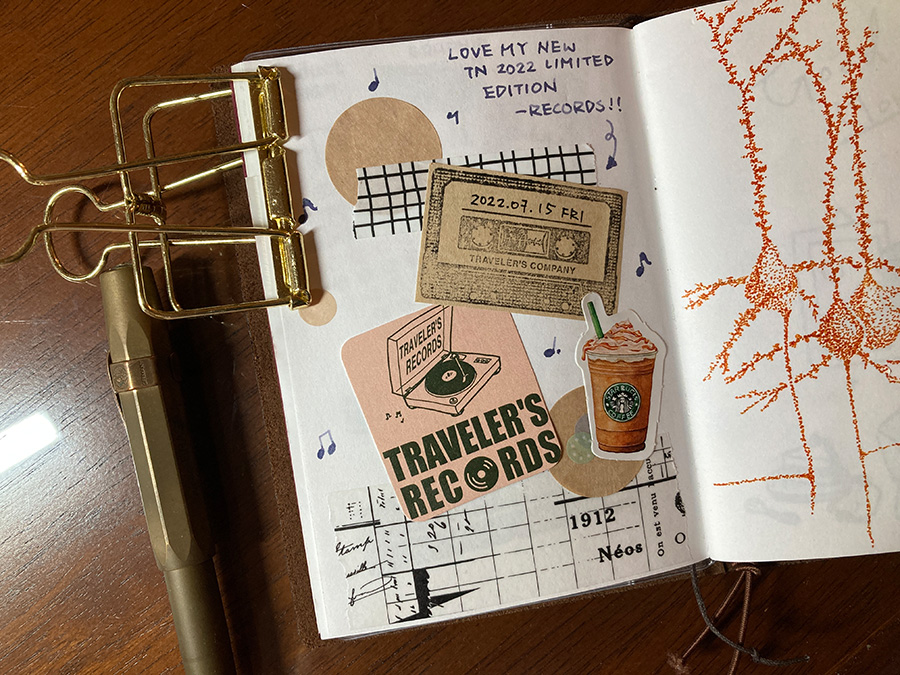 LOVE MY NEW
TN 2022 LIMITED
EDITION
-RECORDS!!
2022.07.15 FRI
TRAVELER'S COMPANY
TRAVELER'S
RECORDS
TRAVELER'S
RECORDS
STARBUCKS
COFFEE
1912
Néos
On est venu l'accu